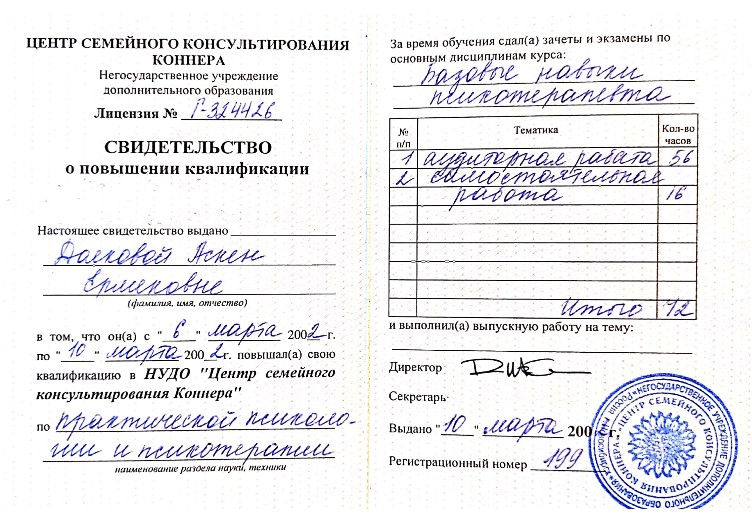 ЦЕНТР СЕМЕЙНОГО КОНСУЛЬТИРОВАНИЯ
КОННЕРА
Негосударственное учреждение
дополнительного образования
Лицензия № Г-324426
СВИДЕТЕЛЬСТВО
о повышении квалификации
Настоящее свидетельство выдано
Аспен
Ермековне
(фамилия, имя, отчество)
в том, что он(а) с "6" марта 2002 г.
по "10" марта 2002 г. повышал(а) свою
квалификацию в НУДО "Центр семейного
консультирования Коннера"
по практической психоло-
гии и психотерапии
наименование раздела науки, техники
За время обучения сдал(а) зачеты и экзамены по
основным дисциплинам курса:
Базовые навыки
психотерапевта
№ п/п Тематика Кол-во часов
1 аудиторная работа 56
2 самостоятельная
работа 16
Итого 72
и выполнил(а) выпускную работу на тему:
Директор
Секретарь
Выдано "10" марта 200 г.
Регистрационный номер 199
НЕГОСУДАРСТВЕННОЕ УЧРЕЖДЕНИЕ ДОПОЛНИТЕЛЬНОГО ОБРАЗОВАНИЯ
ЦЕНТР СЕМЕЙНОГО КОНСУЛЬТИРОВАНИЯ КОННЕРА